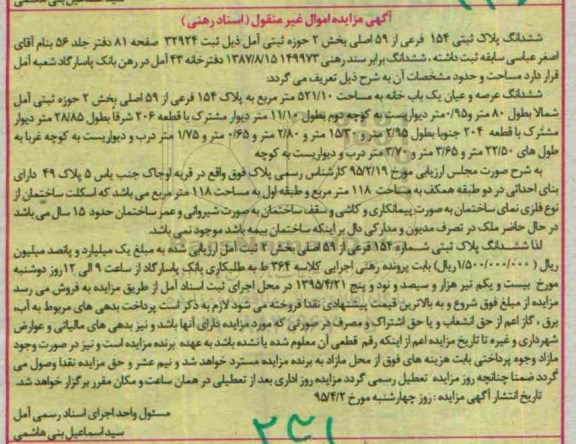 سید اسماعیل بنی هاشمی
آگهی مزایده اموال غیر منقول (اسناد رهنی)
ششدانگ پلاک ثبتی ۱۵۴ فرعی از ۵۹ اصلی بخش ۲ حوزه ثبتی آمل ذیل ثبت ۳۲۹۲۴ صفحه ۸۱ دفتر جلد ۵۶ بنام آقای
اصغر عباسی سابقه ثبت داشته ، ششدانگ برابر سند رهنی ۱۴۹۹۷۳ ۱۳۸۷/۸/۱۵ دفترخانه ۴۳ آمل در رهن بانک پاسارگاد شعبه آمل
قرار دارد مساحت و حدود مشخصات آن به شرح ذیل تعریف می گردد:
ششدانگ عرصه و عیان یک باب خانه به مساحت ۵۲۱/۱۰ متر مربع به پلاک ۱۵۴ فرعی از ۵۹ اصلی بخش ۲ حوزه ثبتی آمل
شمالا بطول ۸۰ متر و ۰/۹۵ متر دیواریست به کوچه دوم بطول ۱۱/۱۰ متر دیوار مشترک با قطعه ۲۰۶ شرقا بطول ۲۸/۸۵ متر دیوار
مشترک با قطعه ۲۰۴ جنوبا بطول ۲/۹۵ متر و ۱۵/۳۰ متر و ۲/۸۰ متر و ۰/۶۵ متر و ۱/۷۵ متر درب و دیواریست به کوچه غربا به
طول های ۲۲/۵۰ متر و ۳/۶۵ متر و ۳/۷۰ متر درب و دیواریست به کوچه
به شرح صورت مجلس ارزیابی مورخ ۹۵/۲/۱۹ کارشناس رسمی پلاک فوق واقع در قریه اوجاک جنب یاس ۵ پلاک ۴۹ دارای
بنای احداثی در دو طبقه همکف به مساحت ۱۱۸ متر مربع و طبقه اول به مساحت ۱۱۸ متر مربع می باشد که اسکلت ساختمان از
نوع فلزی نمای ساختمان به صورت پیمانکاری و کاشی و سقف ساختمان به صورت شیروانی و عمر ساختمان حدود ۱۵ سال می باشد
در حال حاضر ملک در تصرف مدیون و مدارکی دال بر اینکه ساختمان بیمه باشد موجود نمی باشد.
لذا ششدانگ پلاک ثبتی شماره ۱۵۴ فرعی از ۵۹ اصلی بخش ۲ ثبت آمل ارزیابی شده به مبلغ یک میلیارد و پانصد میلیون
ریال (۱/۵۰۰/۰۰۰/۰۰۰ ریال) بابت پرونده رهنی اجرایی کلاسه ۳۶۴ ط به طلبکاری بانک پاسارگاد از ساعت ۹ الی ۱۲ روز دوشنبه
مورخ بیست و یکم تیر هزار و سیصد و نود و پنج ۱۳۹۵/۴/۲۱ در محل اجرای ثبت اسناد آمل از طریق مزایده به فروش می رسد
مزایده از مبلغ فوق شروع و به بالاترین قیمت پیشنهادی نقدا فروخته می شود لازم به ذکر است پرداخت بدهی های مربوط به آب،
برق ، گاز اعم از حق انشعاب و یا حق اشتراک و مصرف در صورتی که مورد مزایده دارای آنها باشد و نیز بدهی های مالیاتی و عوارض
شهرداری و غیره تا تاریخ مزایده اعم از اینکه رقم قطعی آن معلوم شده یا نشده باشد به عهده برنده مزایده است و نیز در صورت وجود
مازاد وجوه پرداختی بابت هزینه های فوق از محل مازاد به برنده مزایده مسترد خواهد شد و نیم عشر و حق مزایده نقدا وصول می
گردد ضمنا چنانچه روز مزایده تعطیل رسمی گردد مزایده روز اداری بعد از تعطیلی در همان ساعت و مکان مقرر برگزار خواهد شد.
تاریخ انتشار آگهی مزایده : روز چهارشنبه مورخ ۹۵/۴/۲
مسئول واحد اجرای اسناد رسمی آمل
سید اسماعیل بنی هاشمی